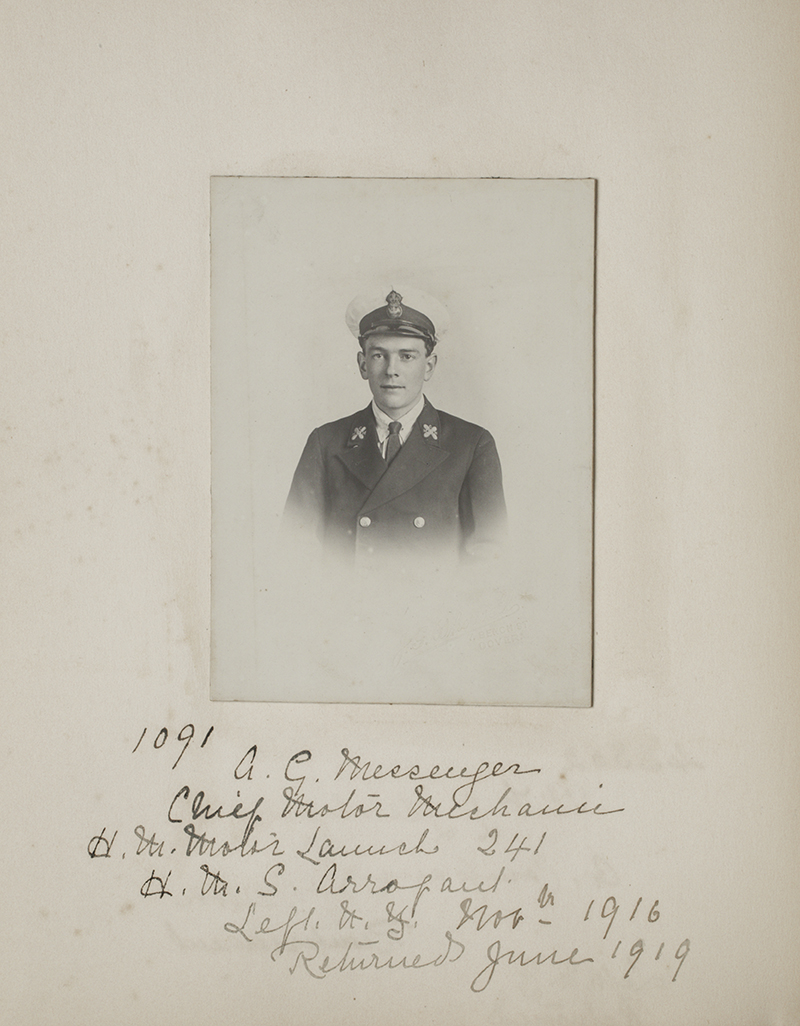 1091
A. G. Messenger
Chief Motor Mechanic
H. M. Motor Launch 241
H. M. S. Arrogant
Left. N. Z. Novbr 1916
Returned June 1919